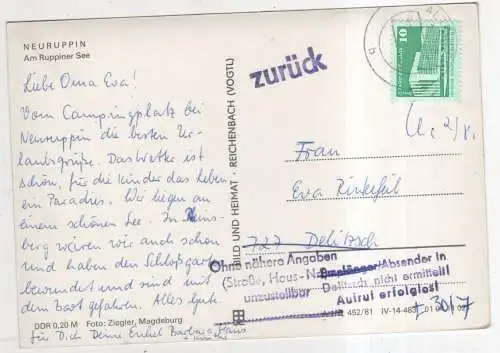 NEURUPPIN
Am Ruppiner See
Liebe Oma Eva!
Vom Campingplatz bei
Neuruppin die besten Ur-
laubsgrüße. Das Wetter ist
schön, für die Kinder das Leben
ein Paradies. Wir liegen an
einem schönen See. In Rheins-
berg waren wir auch schon
und haben den Schloßgarten
bewundert und sind mit
dem Boot gefahren. Alles Gute.
DDR 0,20 M Foto: Ziegler, Magdeburg
für Dich Deine Enkel Barbara, Hans
BILD UND HEIMAT · REICHENBACH (VOGTL)
zurück
10
Frau
Eva
727 Delitzsch
Ohne nähere Angaben
(Straße, Haus-N
unzustellbar
Empfänger/Absender in
Delitzsch nicht ermittelt!
Aufruf erfolglos!
452/81 IV-14-483